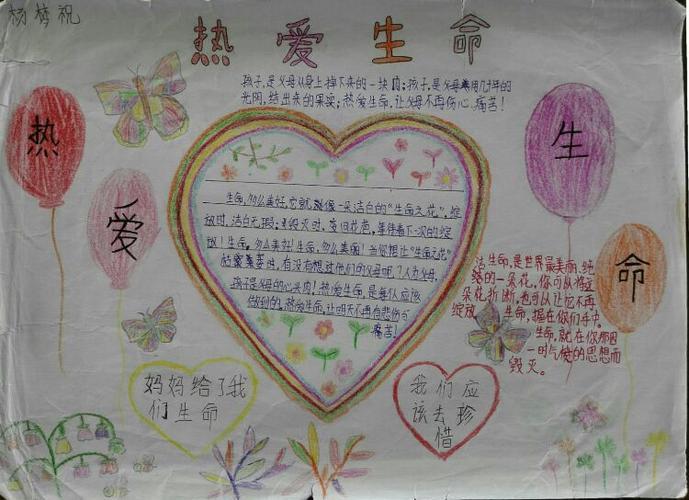 杨梦祝
热爱生命
孩子,是父母从身上掉下来的一块肉;孩子,是父母用几十年的
光阴,结出来的果实;热爱生命,让父母不再伤心、痛苦!
热
爱
生
命
生命,多么美好,它就像一朵洁白的“生命之花”,绽
放时,洁白无瑕;
生命,多么美好!生命,多么美丽!当你想让“生命之花”
有没有想过他们的父母呢?人为父母,
孩子是父母的心头肉!热爱生命,是每人应该
做到的。热爱生命,让明天不再有悲伤与
痛苦!
生命,是世界最美丽、绝
的一朵花,你可以将这
朵花折断,也可以让它不再
绽放。生命,握在你们手中。
生命,就在你那因
一时气馁的思想而
毁灭。
妈妈给了我
们生命
我们应
该去珍
惜